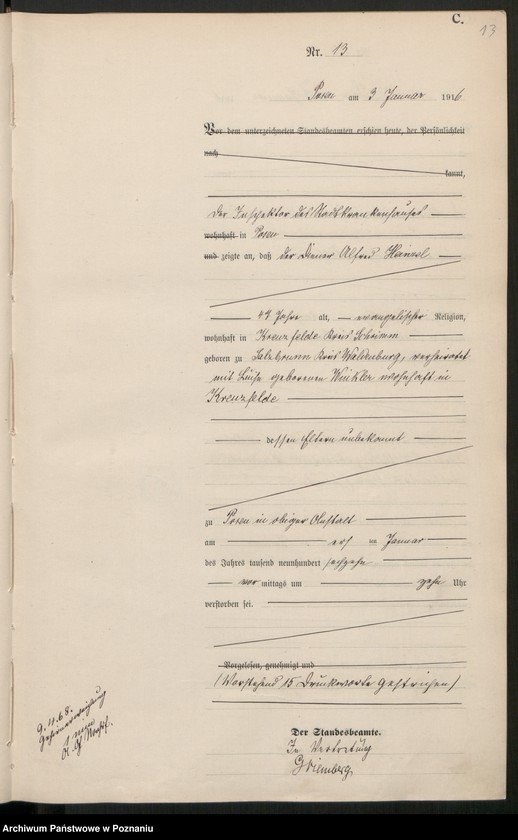 C.
13
Nr. 13
Posen am 3 Januar 1916
Vor dem unterzeichneten Standesbeamten erschien heute, der Persönlichkeit
nach
kannt,
Der Inspektor des Stadtkrankenhauses
wohnhaft in Posen
und zeigte an, daß der Diener Alfred Hainzel
44 Jahre alt, evangelischer Religion,
wohnhaft in Kreuzfelde Kreis Schrimm
geboren zu Salzbrunn Kreis Waldenburg, verheiratet
mit Luise geborenen Winkler wohnhaft in
Kreuzfelde
dessen Eltern unbekannt
zu Posen in obiger Anstalt
am ten Januar
des Jahres tausend neunhundert sechzehn
vor mittags um zehn Uhr
verstorben sei.
Vorgelesen, genehmigt und
(Vorstehend 15 Druckworte gestrichen)
Der Standesbeamte.
In Vertretung
9. 11. 68.
Archiwum Państwowe w Poznaniu